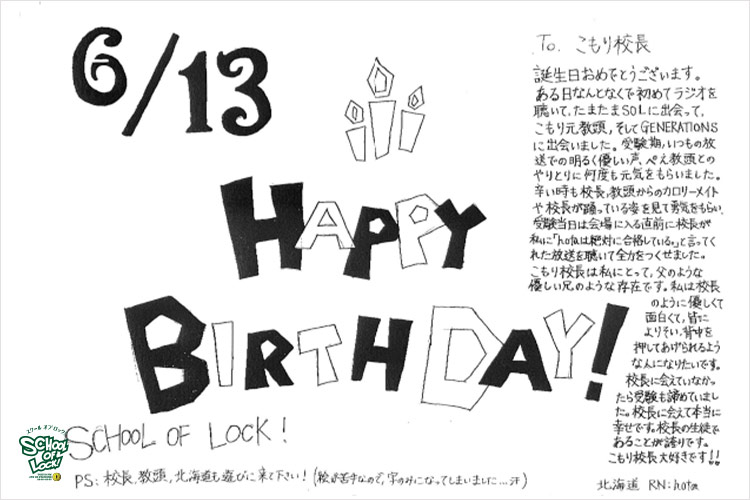 6/13
HAPPY
BIRTHDAY!
SCHOOL OF LOCK!
To. こもり校長
誕生日おめでとうございます。
ある日なんとなくで初めてラジオを
聴いて、たまたまSOLに出会って、
こもり元教頭、そしてGENERATIONS
に出会いました。受験期、いつもの放
送での明るく優しい声、ぺえ教頭との
やりとりに何度も元気をもらいました。
辛い時も校長、教頭からのカロリーメイト
や校長が踊っている姿を見て勇気をもらい、
受験当日は会場に入る直前に校長が
私に「hotaは絶対に合格している。」と言ってく
れた放送を聴いて全力をつくせました。
こもり校長は私にとって、父のような
優しい兄のような存在です。私は校長
のように優しくて
面白くて、皆に
よりそい、背中を
押してあげられるよう
な人になりたいです。
校長に会えていなかっ
たら受験も諦めていまし
た。校長に会えて本当に
幸せです。校長の生徒で
あることが誇りです。
こもり校長大好きです!!
北海道 RN:hota
スクール オブ ロック
SCHOOL
OF
LOCK!
PS:校長、教頭、北海道も遊びに来て下さい!(絵が苦手なので、字のみになってしまいました…汗)